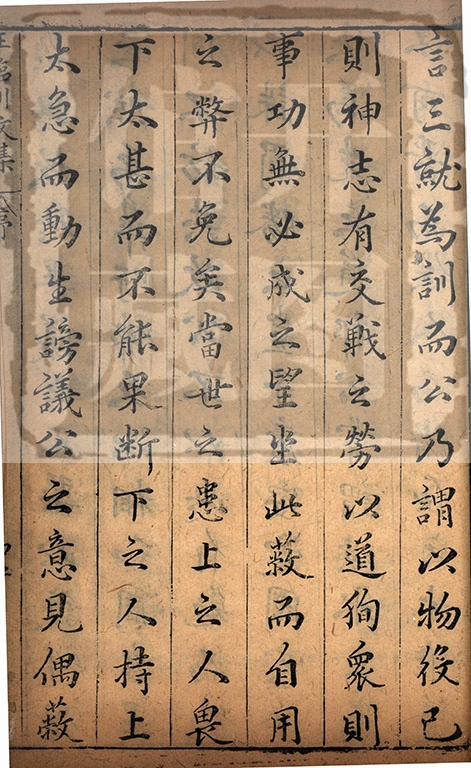 言三就為訓而公乃謂以物役已
則神志有交戰之勞以道徇衆則
事功無必成之望坐此蔽而自用
之弊不免矣當世之患上之人畏
下太甚而不能果断下之人持上
太急而動生謗議公之意見偶蔽
王臨川文集
序